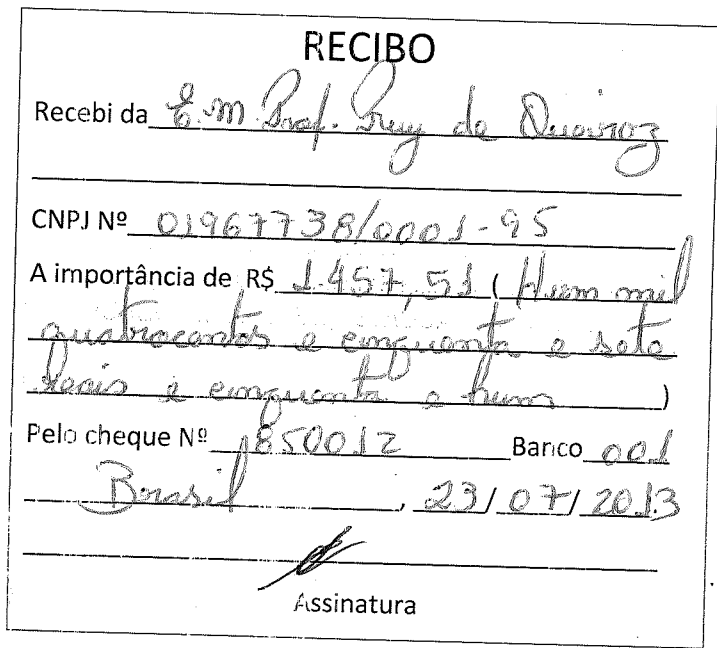 RECIBO
Recebi da E.M. Prof. Guy de Queiroz
CNPJ Nº 01967738/0001-95
A importância de R$ 1.457,51 ( Hum mil
quatrocentos e cinquenta e sete
reais e cinquenta e hum )
Pelo cheque Nº 850012 Banco 001
Brasil , 23/07/2013
Assinatura